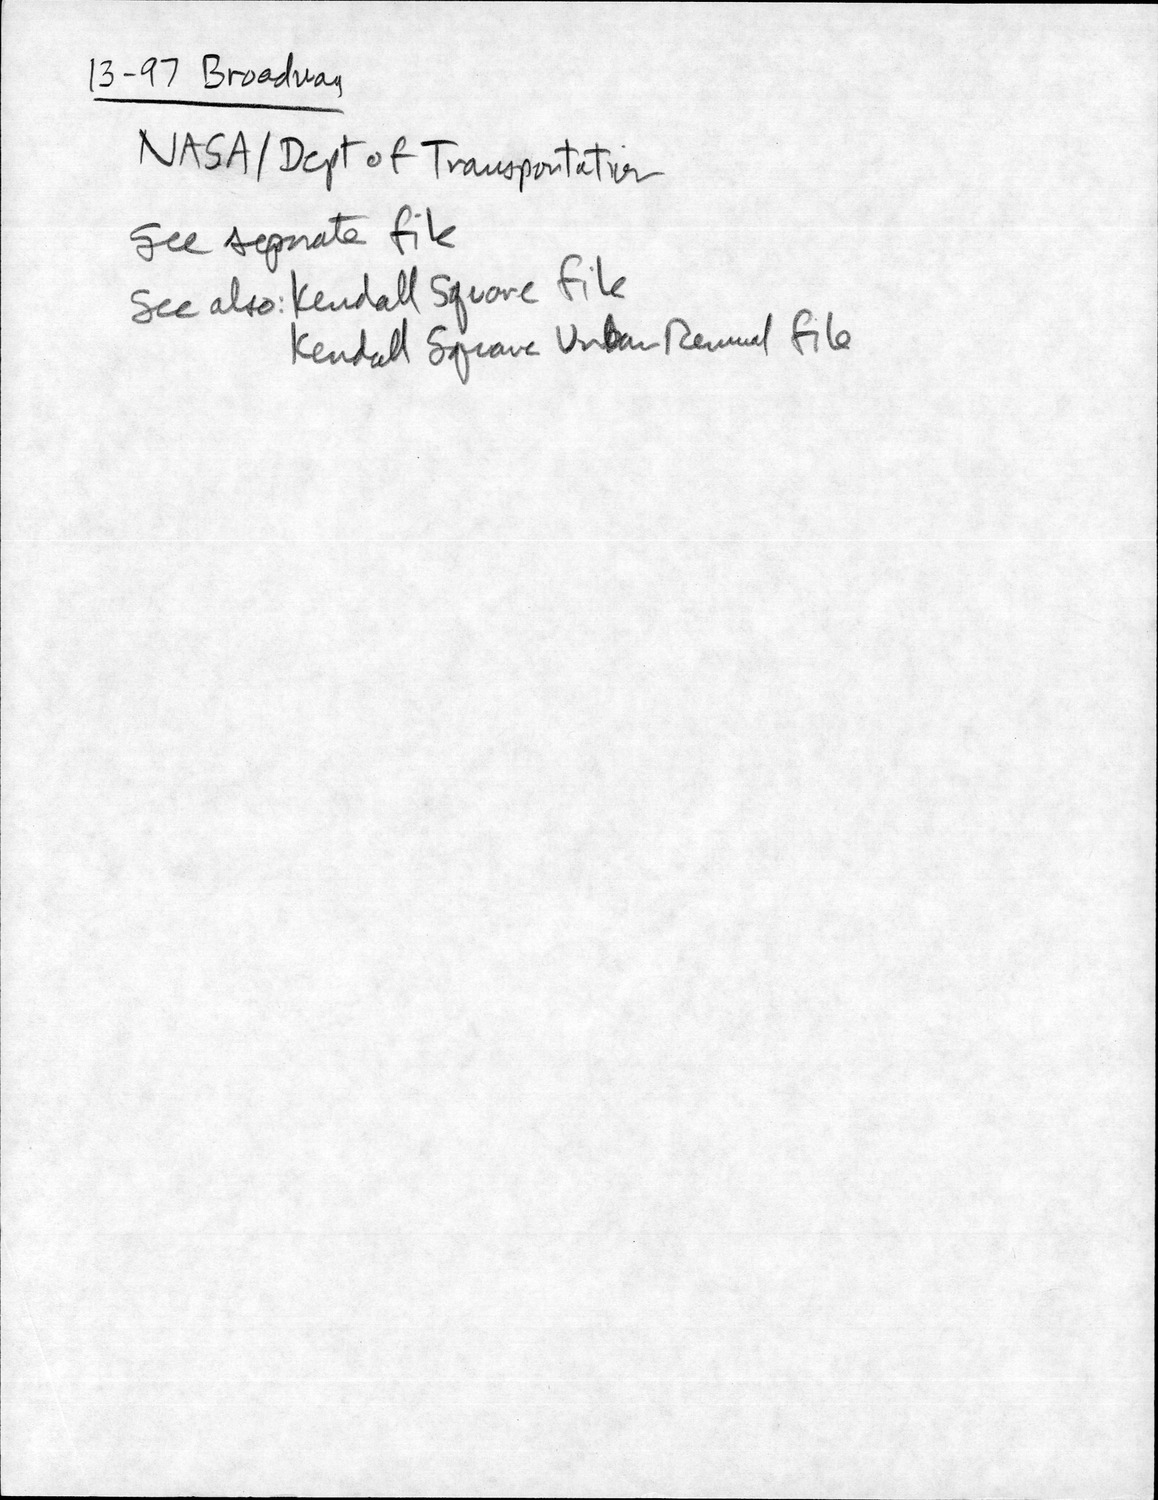 13-97 Broadway
NASA/Dept of Transportation
See separate file
See also: Kendall Square file
Kendall Square Urban Renewal file